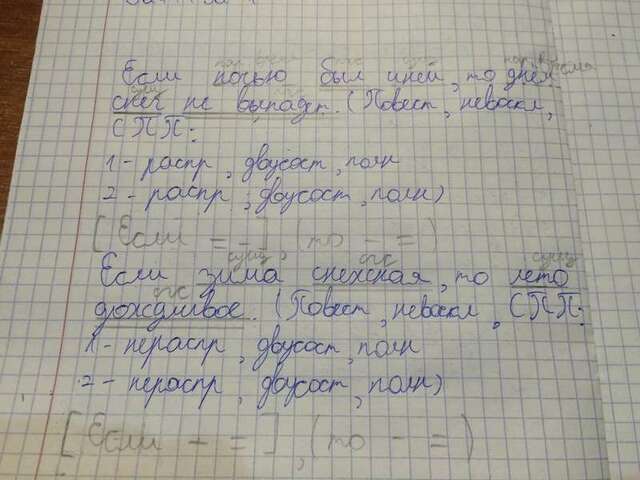 Если ночью был иней, то днём
снег не выпадет. (Повест, невоскл,
СПП:
1 - распр, двусост, полн
2 - распр, двусост, полн)
[Если = - ], (то - = )
сущ. сущ
Если зима снежная, то лето
дождливое. (Повест, невоскл, СПП:
1 - нераспр, двусост, полн
2 - нераспр, двусост, полн)
[Если - = ], (то - = )